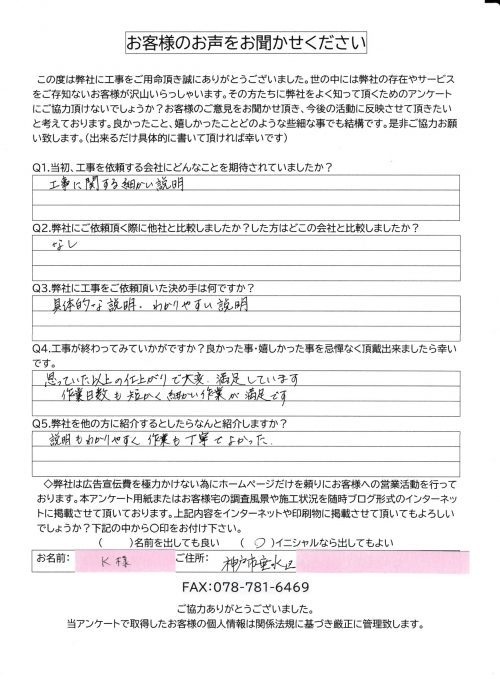 お客様のお声をお聞かせください
この度は弊社に工事をご用命頂き誠にありがとうございました。世の中には弊社の存在やサービス
をご存知ないお客様が沢山いらっしゃいます。その方たちに弊社をよく知って頂くためのアンケート
にご協力頂けないでしょうか？お客様のご意見をお聞かせ頂き、今後の活動に反映させて頂きたい
と考えております。良かったこと、嬉しかったことどのような些細な事でも結構です。是非ご協力お願
い致します。（出来るだけ具体的に書いて頂ければ幸いです）
Q1.当初、工事を依頼する会社にどんなことを期待されていましたか？
工事に関する細かい説明
Q2.弊社にご依頼頂く際に他社と比較しましたか？した方はどこの会社と比較しましたか？
なし
Q3.弊社に工事をご依頼頂いた決め手は何ですか？
具体的な説明、わかりやすい説明
Q4.工事が終わってみていかがですか？良かった事・嬉しかった事を忌憚なく頂戴出来ましたら幸い
です。
思っていた以上の仕上がりで大変、満足しています
作業日数も短かく細かい作業が満足です
Q5.弊社を他の方に紹介するとしたらなんと紹介しますか？
説明もわかりやすく、作業も丁寧でよかった。
◇弊社は広告宣伝費を極力かけない為にホームページだけを頼りにお客様への営業活動を行って
おります。本アンケート用紙またはお客様宅の調査風景や施工状況を随時ブログ形式のインターネッ
トに掲載させて頂いております。上記内容をインターネットや印刷物に掲載させて頂いてもよろしい
でしょうか？下記の中から〇印をお付け下さい。
（　　）名前を出しても良い　（ 〇 ）イニシャルなら出してもよい
お名前： K様 ご住所： 神戸市垂水区
FAX：078-781-6469
ご協力ありがとうございました。
当アンケートで取得したお客様の個人情報は関係法規に基づき厳正に管理致します。